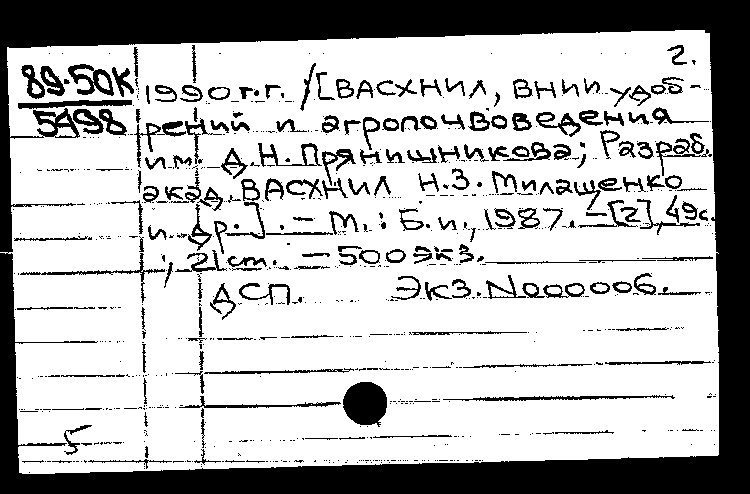 2.
89-50К
5498
1990 г.г. /[ВАСХНИЛ, ВНИИ удоб-
рений и агропочвоведения
им. Д.Н. Прянишникова; Разраб.
акад. ВАСХНИЛ Н.З. Милащенко
и др.]. - М.: Б.и., 1987. - [2], 49с.
; 21 см. - 500 экз.
ДСП. Экз. N000006.
5